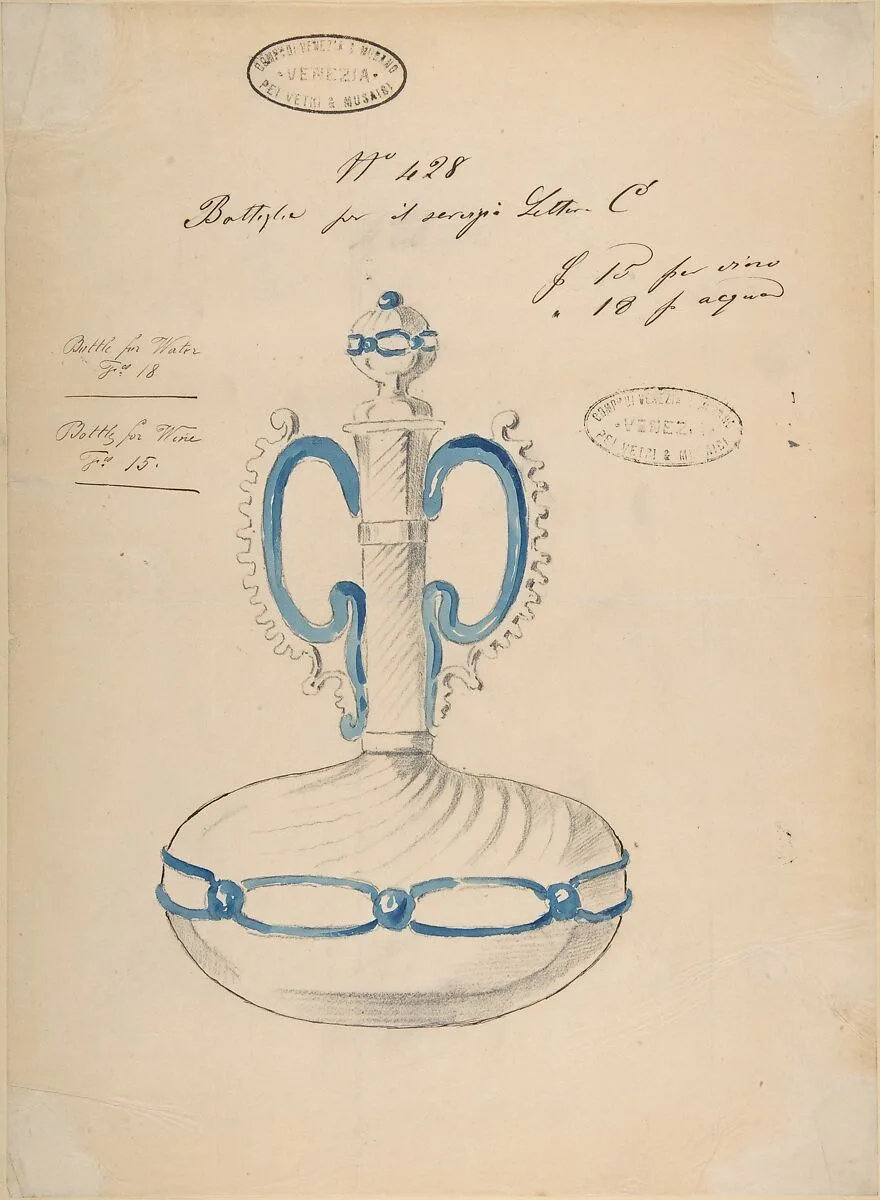 COMP. DI VENEZIA & MURANO
VENEZIA
PEI VETRI & MUSAICI
No 428
Bottiglie per il servizio Lettera C
15 per vino
" 18 p acqua
Bottle for Water
Fcs 18
Bottle for Wine
Fcs 15.
COMP. DI VENEZIA
VENEZIA
PEI VETRI & MUSAICI